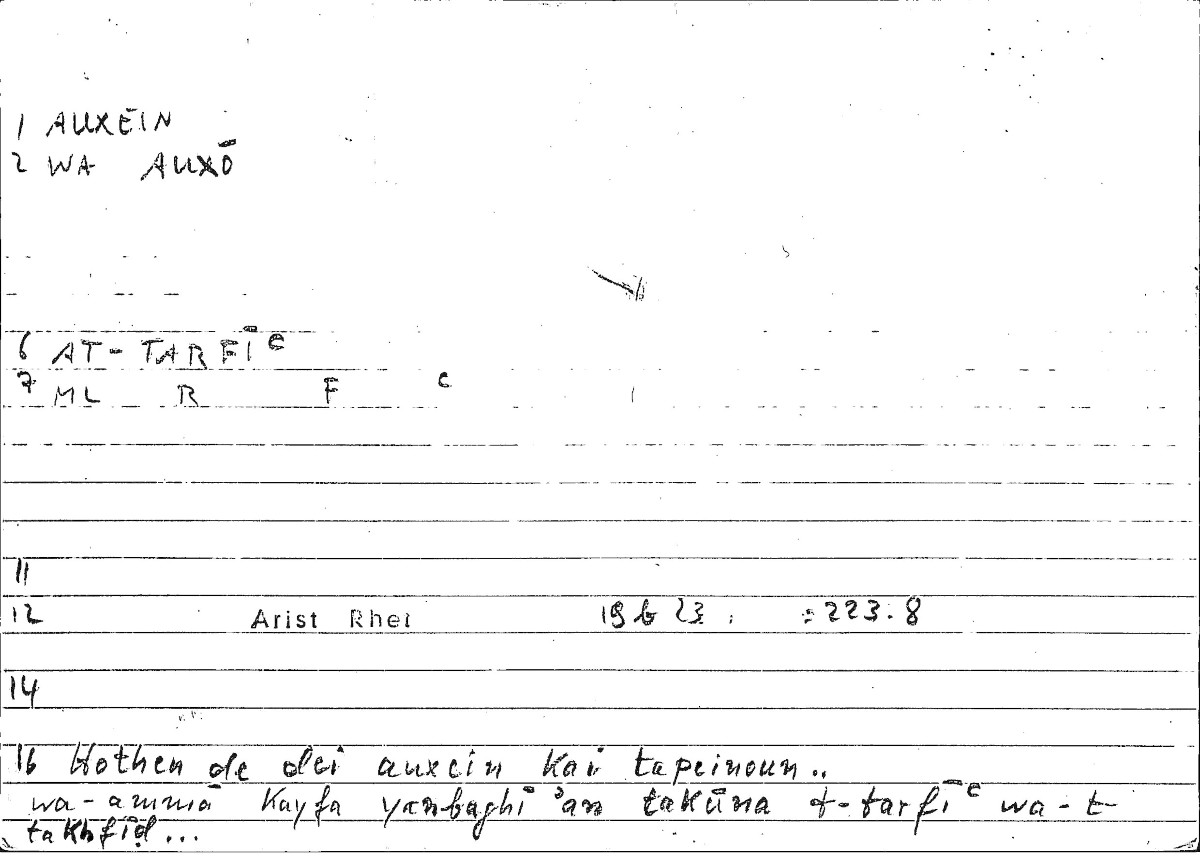 1 AUXEIN
2 WA AUXŌ
6 AT-TARFĪᶜ
7 ML R F ᶜ
11
12 Arist Rhet 19b23 : 223.8
14
16 Hothen de dei auxein kai tapeinoun..
wa-ammā kayfa yanbaghī ʾan takūna t-tarfīᶜ wa-t-
takhfīḍ...